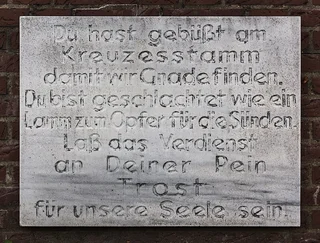 Du hast gebüßt am
Kreuzesstamm
damit wir Gnade finden.
Du bist geschlachtet wie ein
Lamm zum Opfer für die Sünden.
Laß das Verdienst
an Deiner Pein
Trost
für unsere Seele sein.